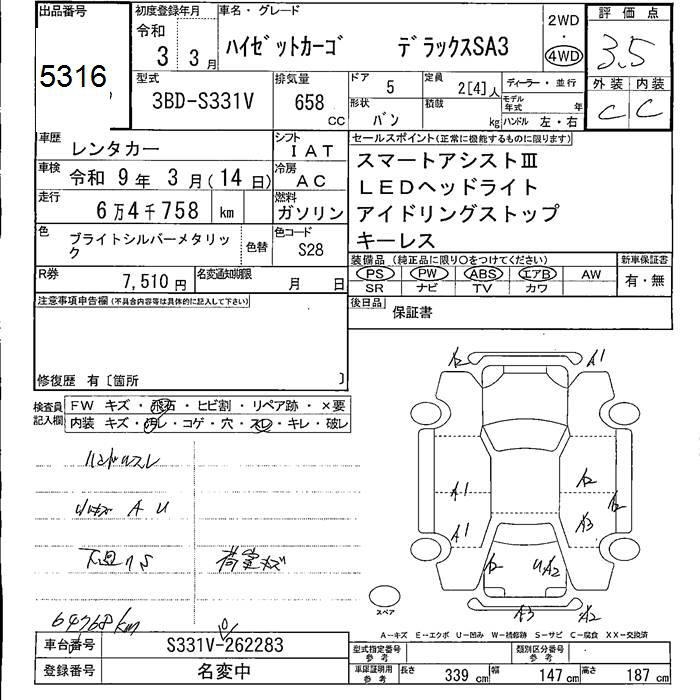 出品番号 初度登録年月 車名・グレード 2WD 評価点
5316 令和 3 3月 ハイゼットカーゴ デラックスSA3 4WD 3.5
型式 排気量 ドア 5 定員 2[4]人 ディーラー・並行 外装 内装
3BD-S331V 658 CC 形状 バン 積載 kg モデル年式 年 ハンドル 左・右 C C
車歴 レンタカー シフト IAT セールスポイント(正常に機能するものに限ります)
車検 令和 9年 3月(14日) 冷房 AC スマートアシストⅢ
走行 6万4千758 km 燃料 ガソリン LEDヘッドライト
色 ブライトシルバーメタリック 色替 色コード S28 アイドリングストップ
キーレス
R券 7,510円 名変通知期限 月 日 装備品(純正品に限り○をつけてください) 新車保証書
PS PW ABS エアB AW 有・無
SR ナビ TV カワ
注意事項申告欄(不具合内容等は具体的に記入して下さい) 後日品 保証書
修復歴 有〔箇所 〕
検査員記入欄 FW キズ・飛石・ヒビ割・リペア跡・×要
内装 キズ・汚レ・コゲ・穴・スレ・キレ・破レ
ハンドルスレ
A U
荷室キズ
64768km
A2 A1
A1 A2 A2
A1 A3
A2 UA2
A3 A2
スペア
A-キズ E-エクボ U-凹み W-補修跡 S-サビ C-腐食 XX-交換済
車台番号 S331V-262283 型式指定番号 参考 類別区分番号 参考
登録番号 名変中 車庫証明用 参考 長さ 339cm 幅 147cm 高さ 187cm